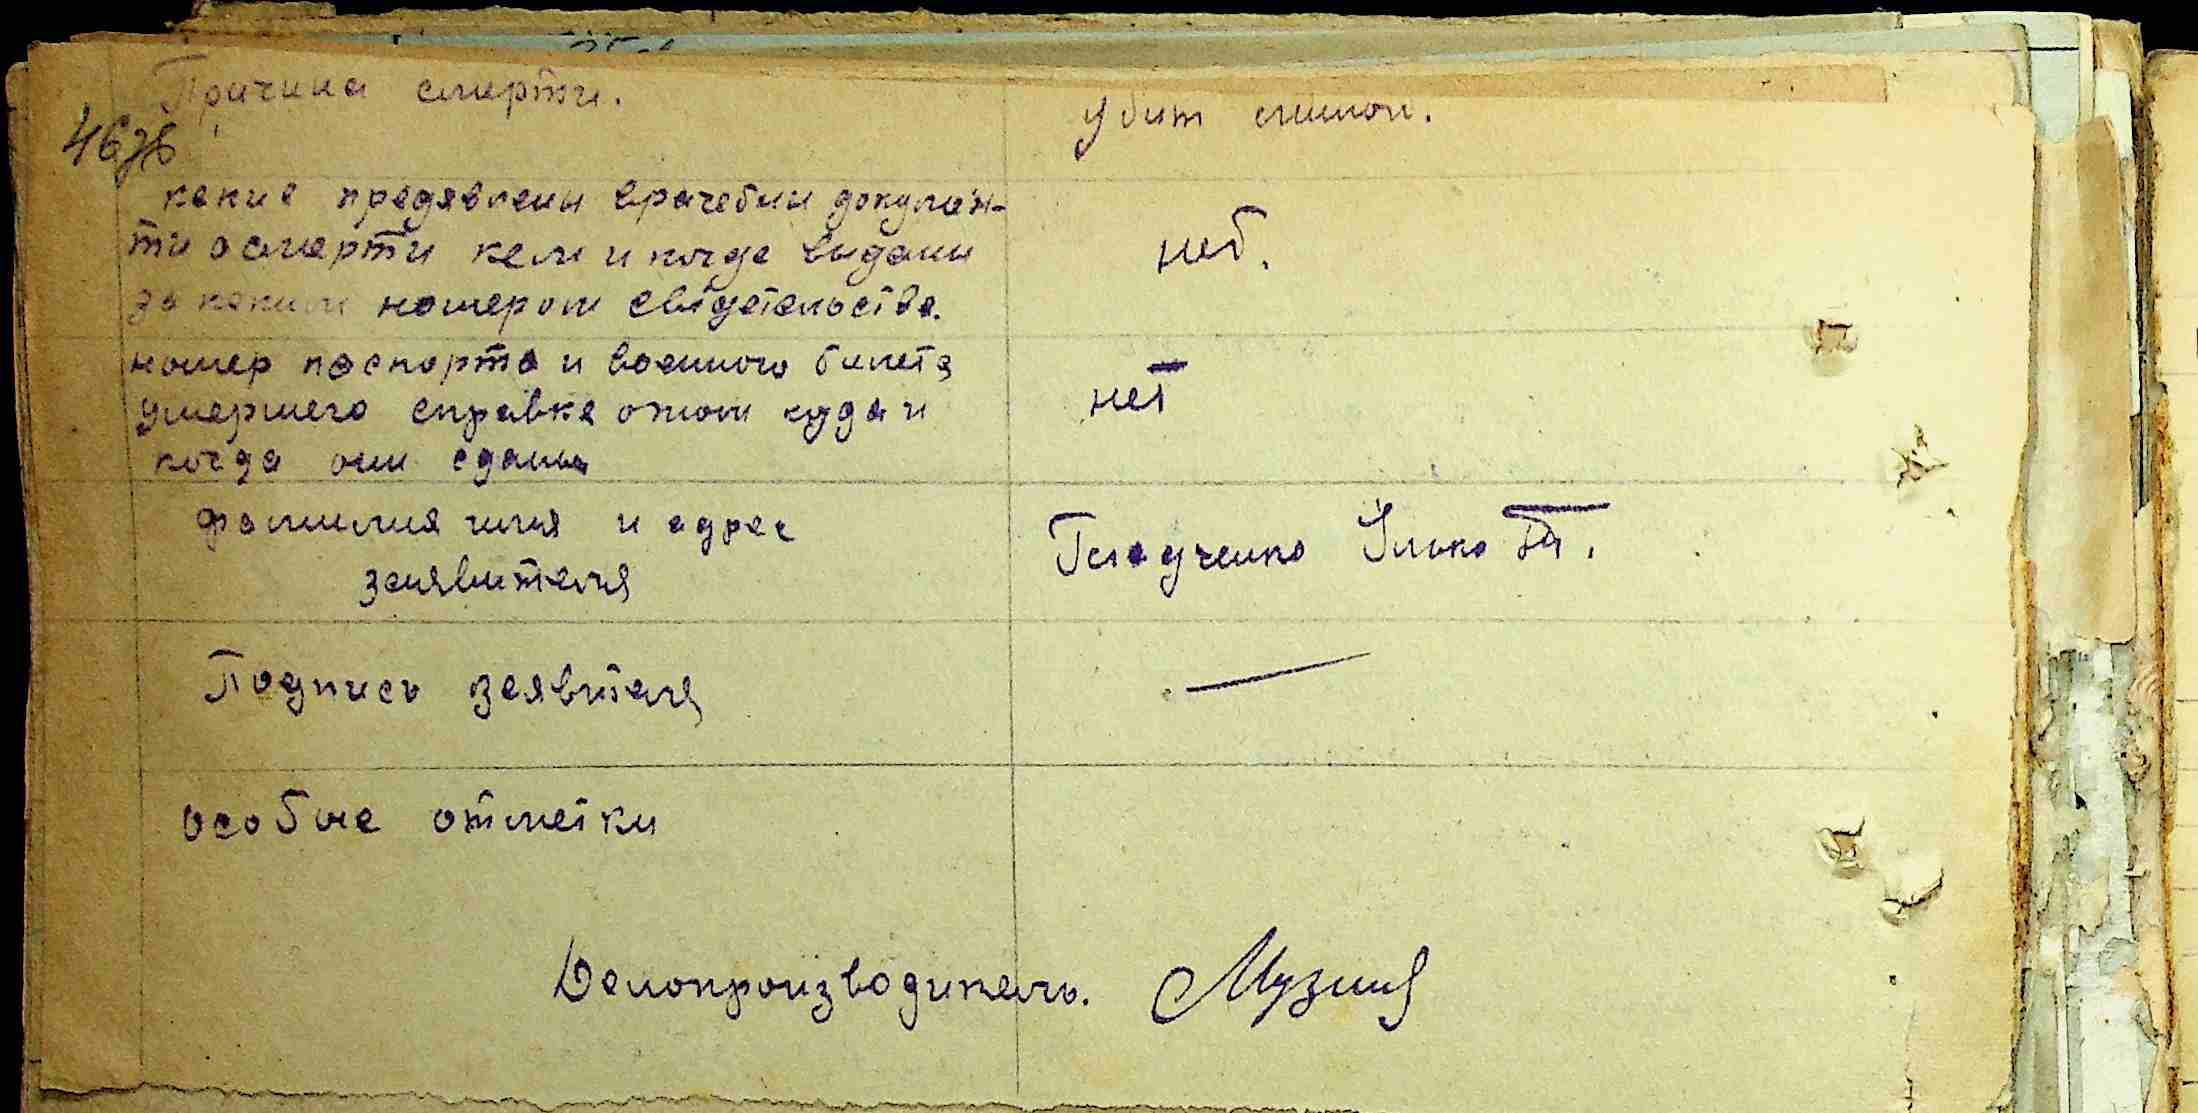 Причина смерти.
убит миной.
какие предявлены врачебни докумен-
ти о смерти кем и когда выдани
за каким номером свідетельства.
нет.
номер паспорта и военного билета
умершего справка отом куда и
когда они сданы
нет
фамилия имя и адрес
заявителя
Гладченко Илько
Подпись заявителя
особые отметки
Делопроизводитель.